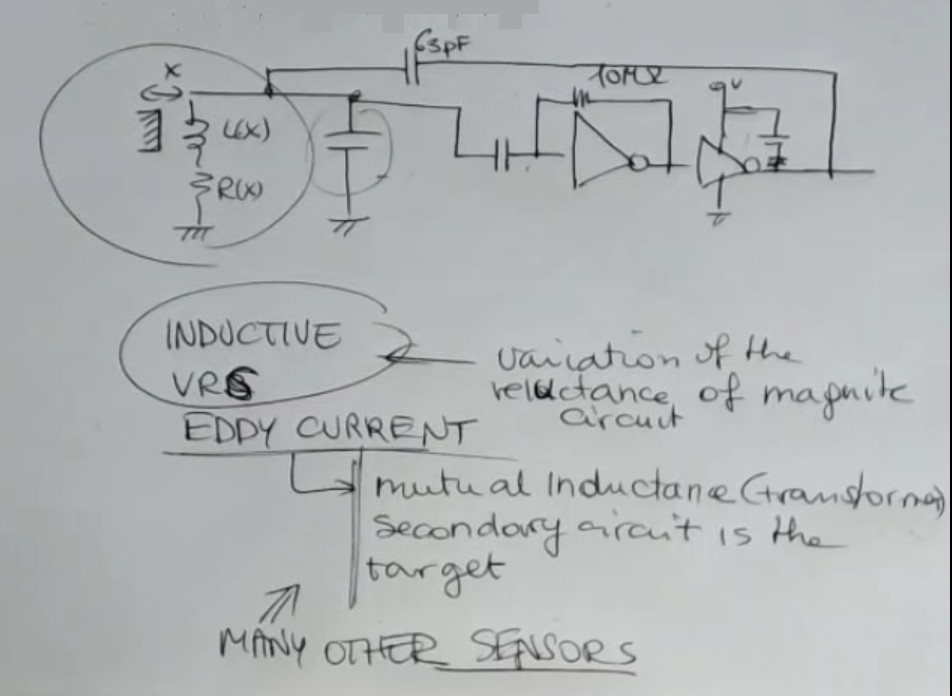 63pF
X
10MΩ
V
L(X)
R(X)
INDUCTIVE
VRS
variation of the
reluctance of magnitc
circuit
EDDY CURRENT
mutual Inductance (transformer)
secondary circuit is the
target
MANY OTHER SENSORS